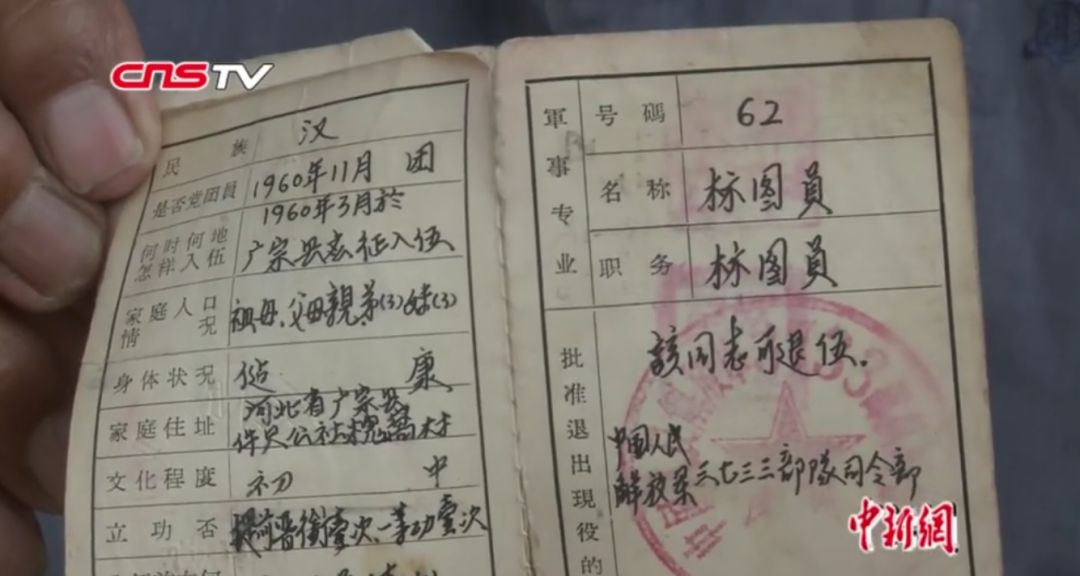 CNSTV
民族 汉
是否党团員 1960年11月 团
何时何地怎样入伍 1960年3月於
广宗县应征入伍
家庭人口情况 祖母.父母親.弟(3)妹(3)
身体状况 健康
家庭住址 河北省广宗县
件只公社槐窩村
文化程度 初中
立功否 提前晋衔壹次.一等功壹次
軍事专业 号碼 62
名称 标图員
职务 标图員
批准退出現役的
該同志可退伍.
中国人民
解放军三七三三部隊司令部
中新網